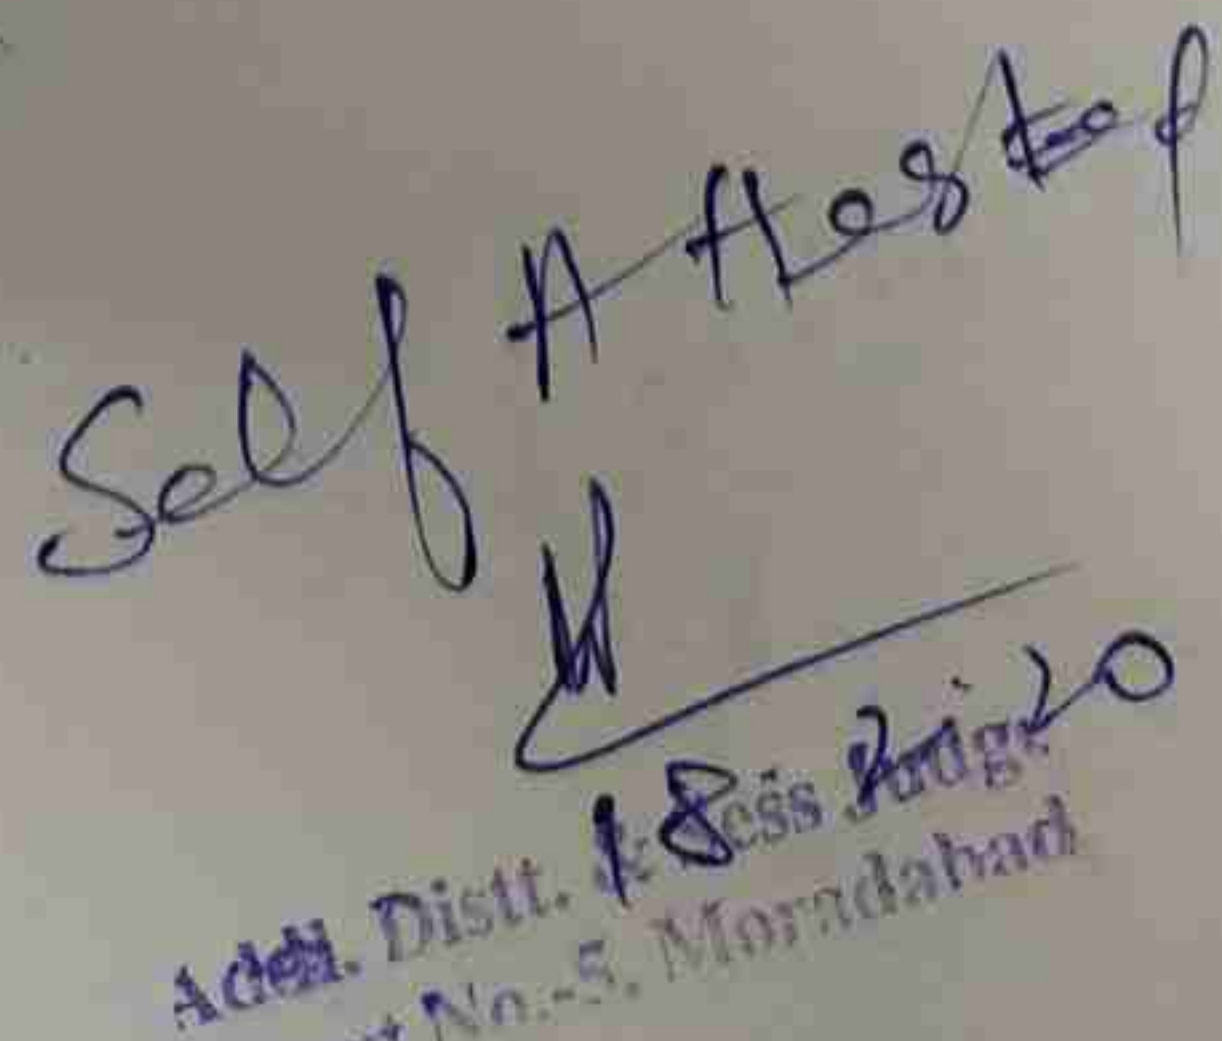 Self Attested
18 2 20
Addl. Distt. & Sess Judge
No.-5, Moradabad